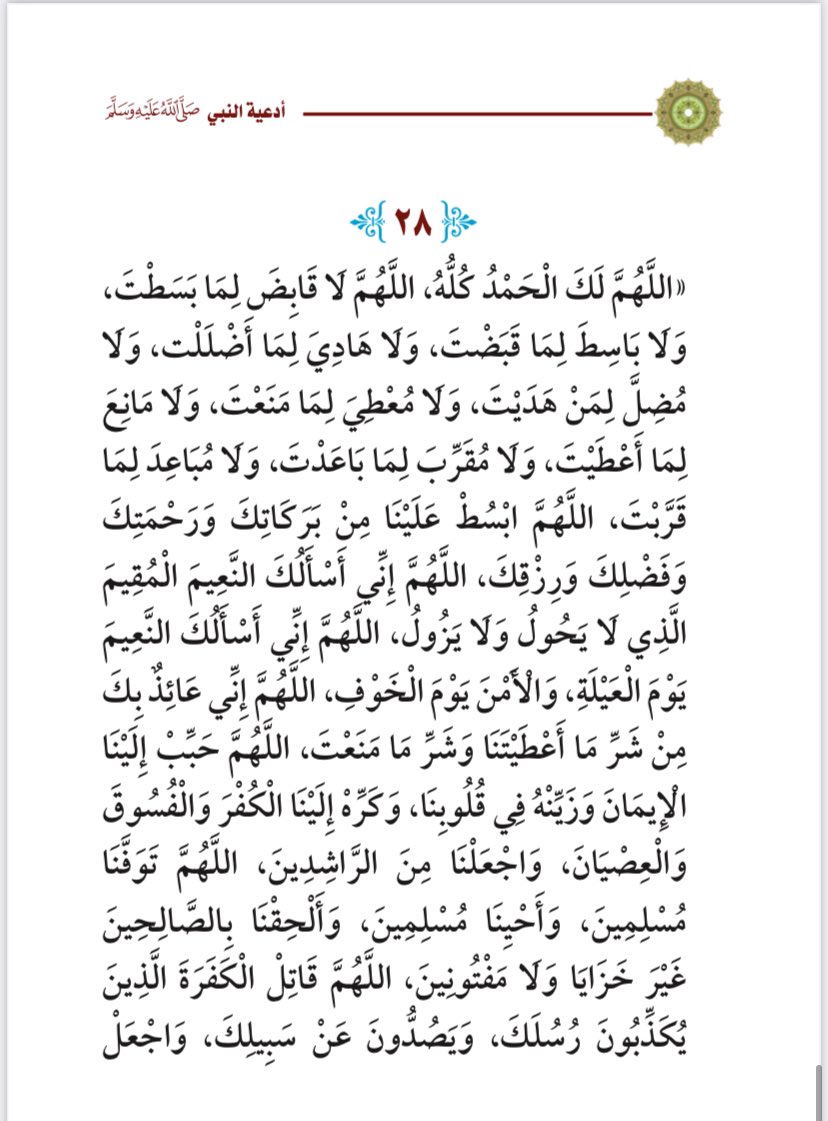 أدعية النبي صَلَّى اللَّهُ عَلَيْهِ وَسَلَّمَ
٢٨
«اللَّهُمَّ لَكَ الْحَمْدُ كُلُّهُ، اللَّهُمَّ لَا قَابِضَ لِمَا بَسَطْتَ،
وَلَا بَاسِطَ لِمَا قَبَضْتَ، وَلَا هَادِيَ لِمَا أَضْلَلْت، وَلَا
مُضِلَّ لِمَنْ هَدَيْتَ، وَلَا مُعْطِيَ لِمَا مَنَعْتَ، وَلَا مَانِعَ
لِمَا أَعْطَيْتَ، وَلَا مُقَرِّبَ لِمَا بَاعَدْتَ، وَلَا مُبَاعِدَ لِمَا
قَرَّبْتَ، اللَّهُمَّ ابْسُطْ عَلَيْنَا مِنْ بَرَكَاتِكَ وَرَحْمَتِكَ
وَفَضْلِكَ وَرِزْقِكَ، اللَّهُمَّ إِنِّي أَسْأَلُكَ النَّعِيمَ الْمُقِيمَ
الَّذِي لَا يَحُولُ وَلَا يَزُولُ، اللَّهُمَّ إِنِّي أَسْأَلُكَ النَّعِيمَ
يَوْمَ الْعَيْلَةِ، وَالْأَمْنَ يَوْمَ الْخَوْفِ، اللَّهُمَّ إِنِّي عَائِذٌ بِكَ
مِنْ شَرِّ مَا أَعْطَيْتَنَا وَشَرِّ مَا مَنَعْتَ، اللَّهُمَّ حَبِّبْ إِلَيْنَا
الْإِيمَانَ وَزَيِّنْهُ فِي قُلُوبِنَا، وَكَرِّهْ إِلَيْنَا الْكُفْرَ وَالْفُسُوقَ
وَالْعِصْيَانَ، وَاجْعَلْنَا مِنَ الرَّاشِدِينَ، اللَّهُمَّ تَوَفَّنَا
مُسْلِمِينَ، وَأَحْيِنَا مُسْلِمِينَ، وَأَلْحِقْنَا بِالصَّالِحِينَ
غَيْرَ خَزَايَا وَلَا مَفْتُونِينَ، اللَّهُمَّ قَاتِلْ الْكَفَرَةَ الَّذِينَ
يُكَذِّبُونَ رُسُلَكَ، وَيَصُدُّونَ عَنْ سَبِيلِكَ، وَاجْعَلْ